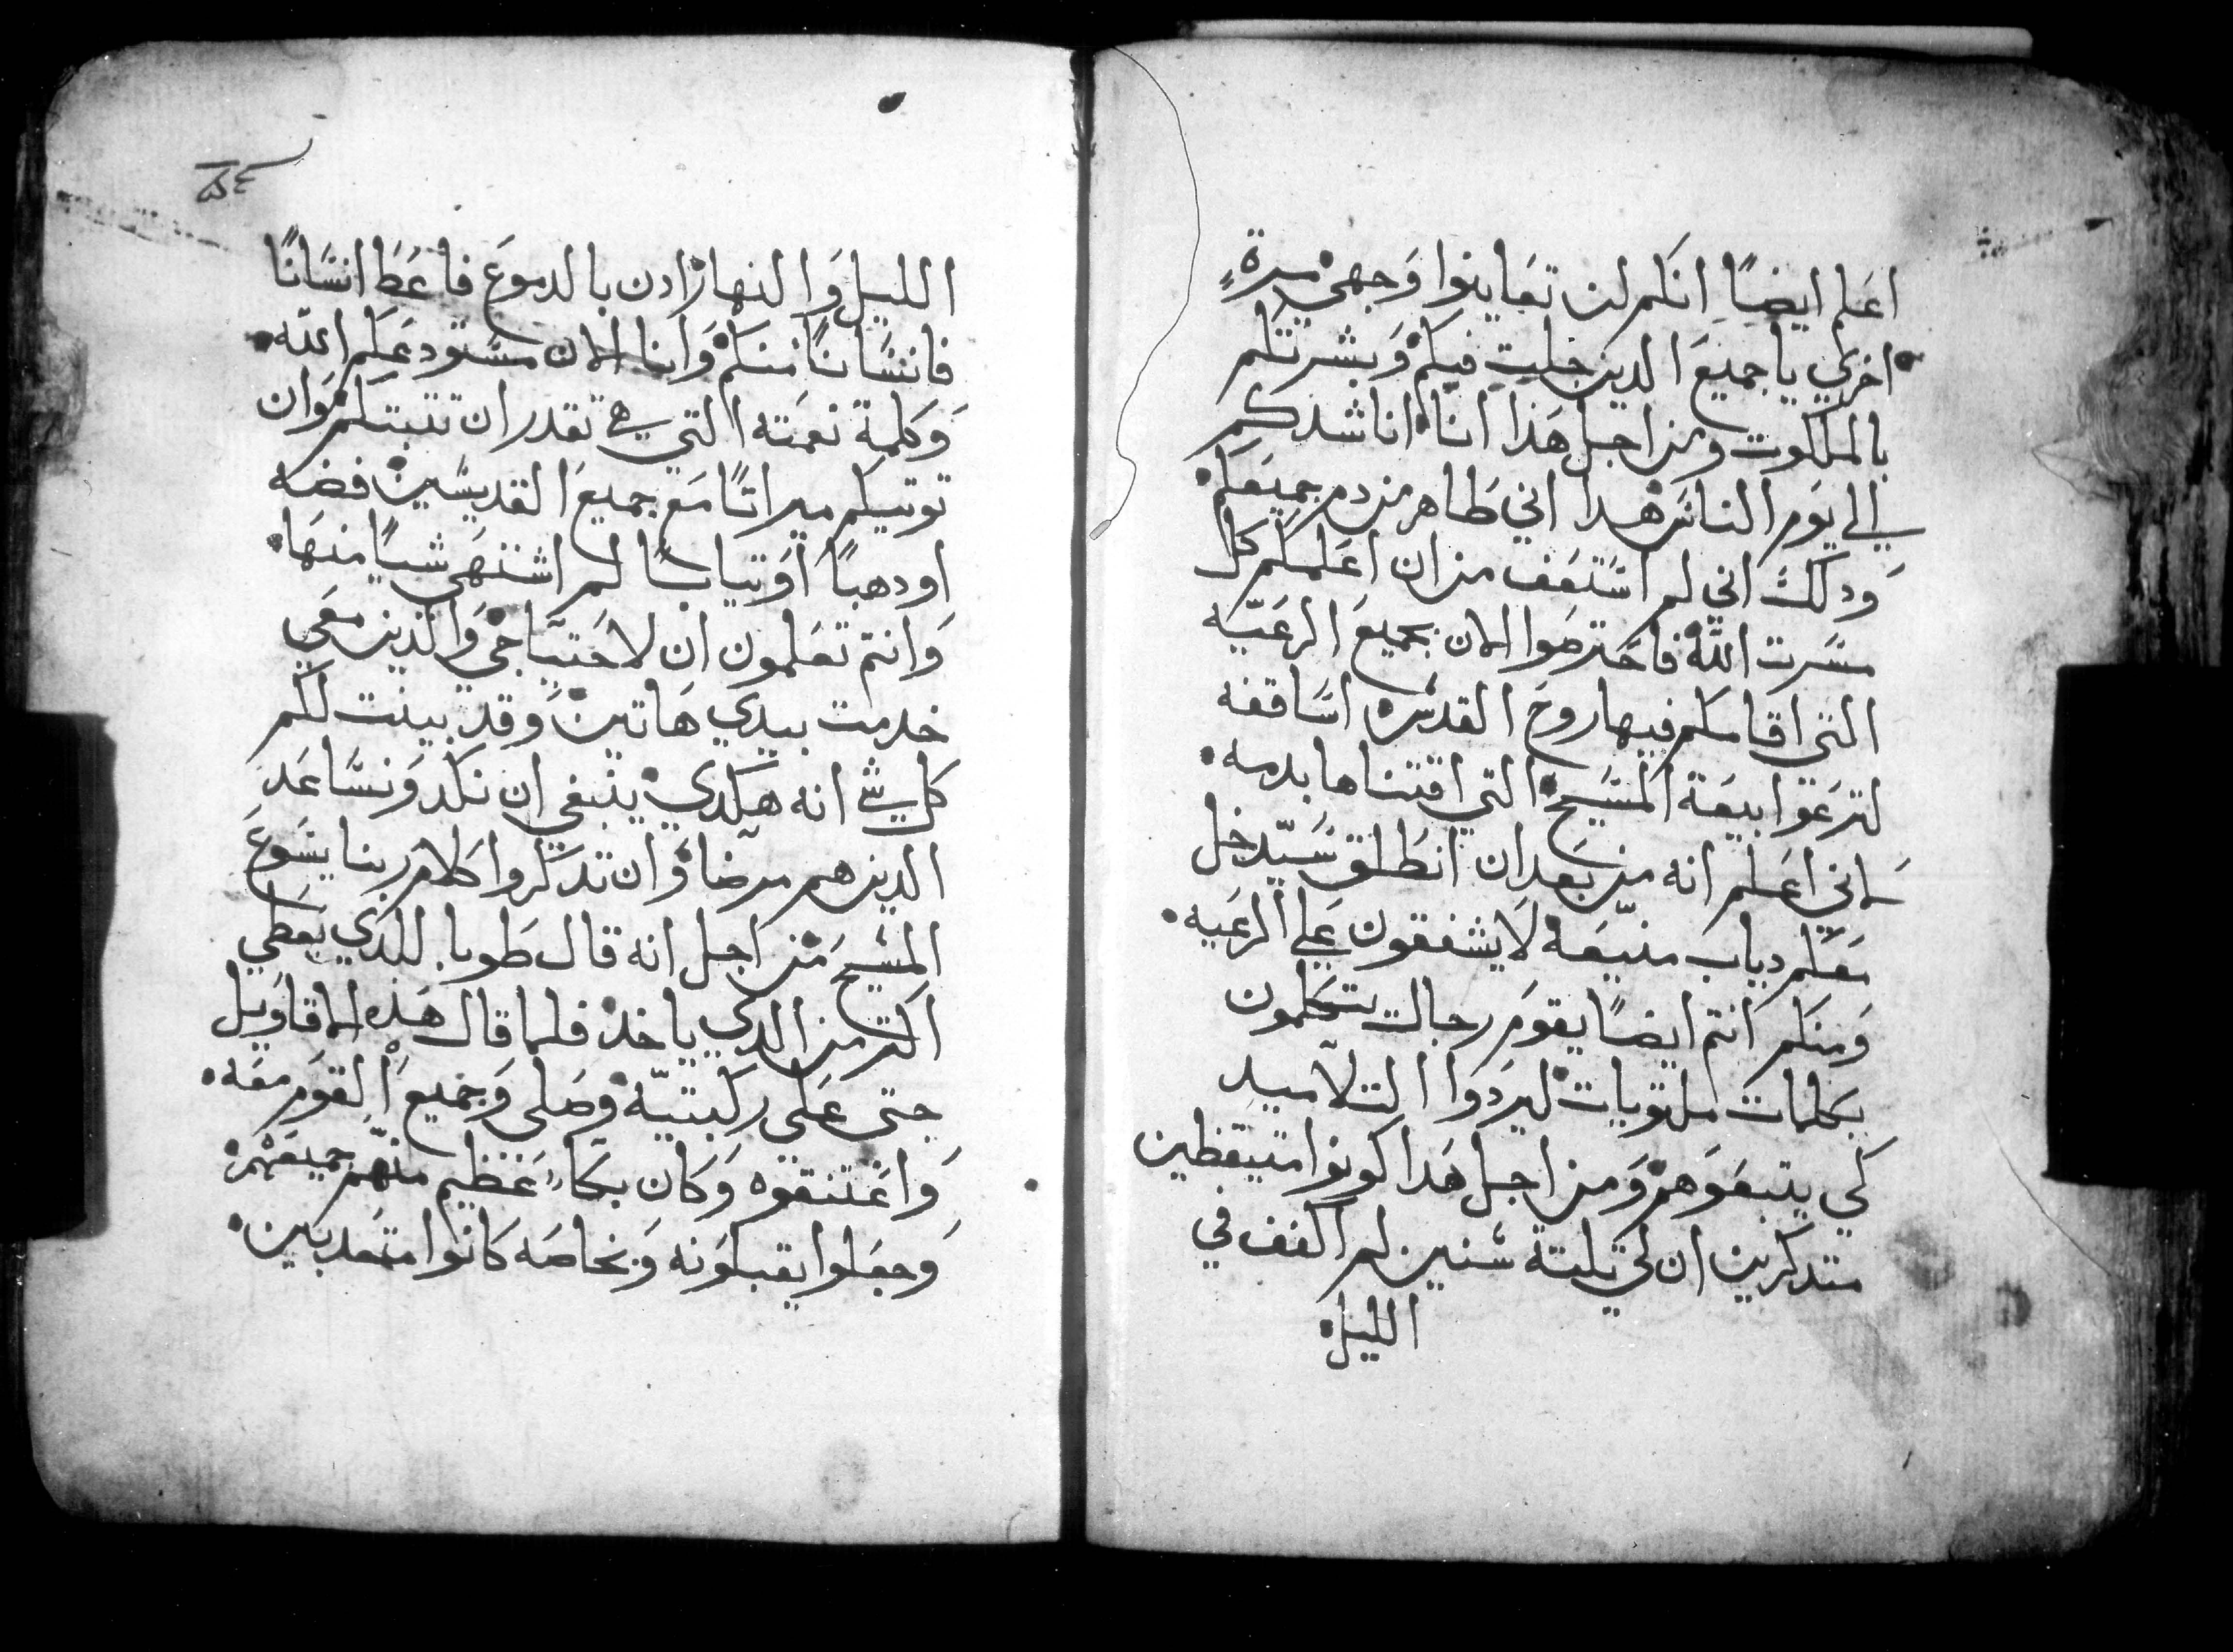 اعلم ايضًا انكم لن تعاينوا وجهي مرة
اخري يا جميع الدين جلت فيكم وبشرتكم
بالملكوت ومن اجل هذا انا اناشدكم
في الي يوم الناس هدا اني طاهر من دم جميعكم
ودلك اني لم استعف من ان اعلمكم كل
مسرت الله فاحترصوا الان بجميع الرعيه
التي اقامكم فيها روح القدس اساقفه
لترعوا بيعة المسيح التي اقتناها بدمه
اني اعلم انه من بعد ان انطلق سيدخل
معكم دياب منيعه لا يشفقون علي الرعيه
ومنكم انتم ايضًا يقوم رجالت يتكلمون
بكلمات ملتويات ليردوا التلاميد
كي يتبعوهم ومن اجل هدا كونوا متيقظين
متدكرين ان لي تلتة سنين لم اكفف في
الليل
الليل والنهار ادن بالدموع فاعظ انسانًا
فانسانًا منكم وانا الان مستودعكم الله
وكلمة نعمته التي هي تقدر ان تتبتكم وان
توتيكم ميراتًا مع جميع القديسين فضه
او دهبًا او تيابًا لم اشتهي شيًا منها
وانتم تعلمون ان لاحتياجي والذين معي
خدمت بيدي هاتين وقد بينت لكم
كل شي انه هكدي ينبغي ان نكد ونساعد
الدين هم مرضا وان تدكروا كلام ربنا يسوع
المسيح من اجل انه قال طوبا للدي يعطي
اكتر من الدي ياخد فلما قال هذه الاقاويل
جتى على ركبتيه وصلي وجميع القوم معه
واعتنقوه وكان بكاء عظيم منهم جميعهم
وجعلوا يقبلونه وبخاصه كانوا متعدبين